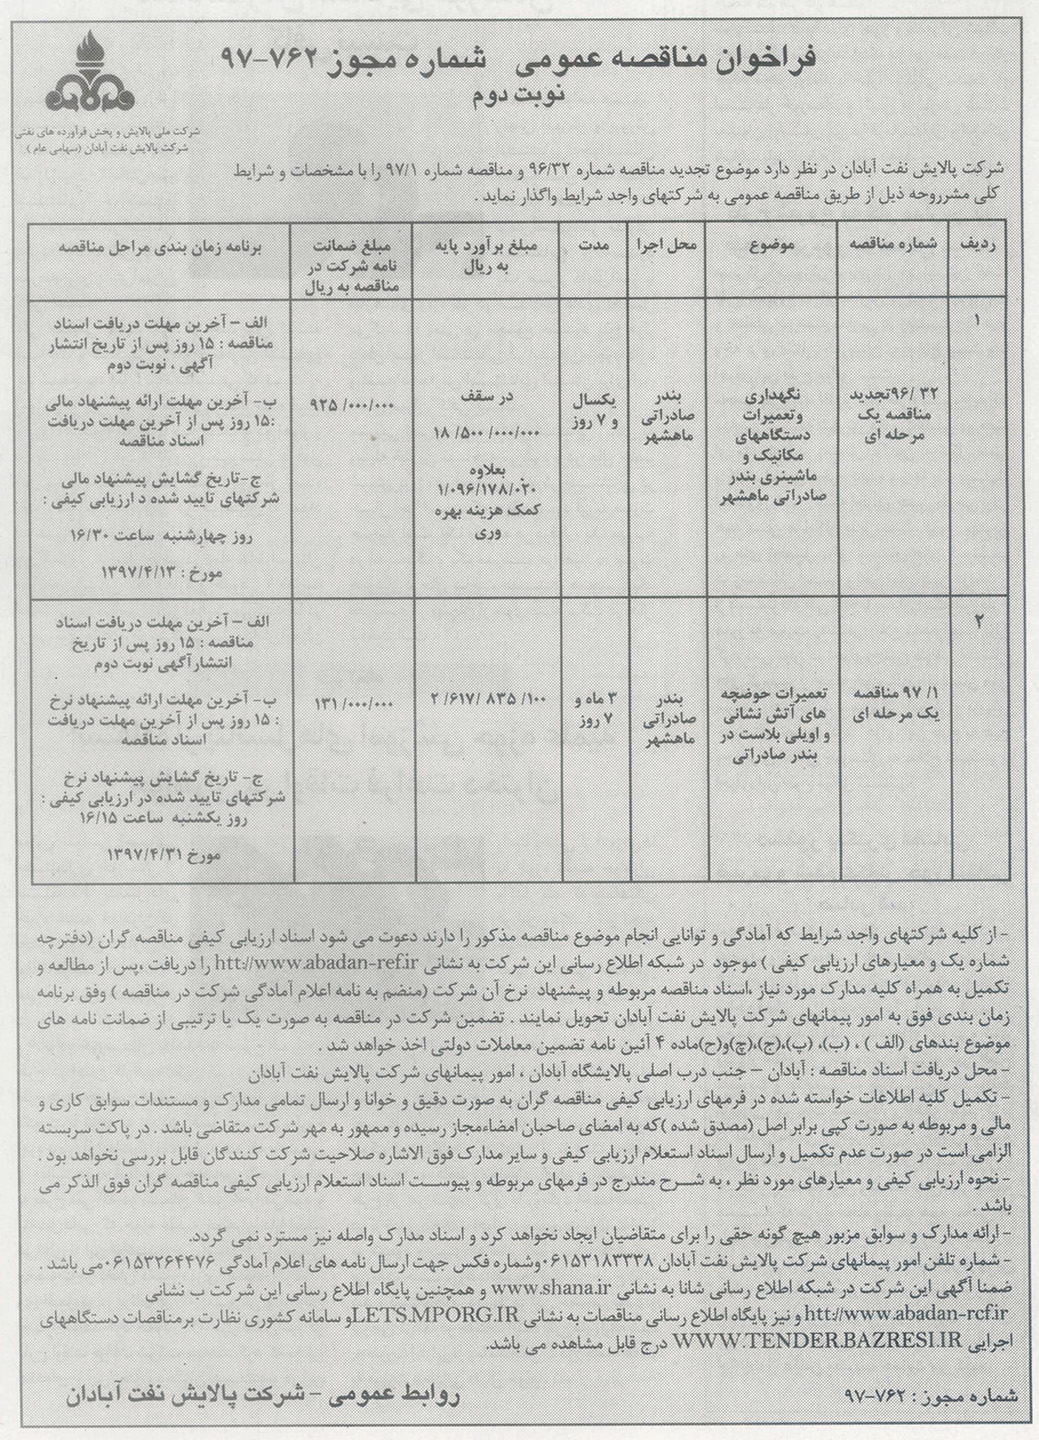 فراخوان مناقصه عمومی شماره مجوز ۷۶۲-۹۷
نوبت دوم
شرکت ملی پالایش و پخش فرآورده های نفتی
شرکت پالایش نفت آبادان (سهامی عام )
شرکت پالایش نفت آبادان در نظر دارد موضوع تجدید مناقصه شماره ۹۶/۳۲ و مناقصه شماره ۹۷/۱ را با مشخصات و شرایط
کلی مشرروحه ذیل از طریق مناقصه عمومی به شرکتهای واجد شرایط واگذار نماید .
ردیف
شماره مناقصه
موضوع
محل اجرا
مدت
مبلغ برآورد پایه
به ریال
مبلغ ضمانت
نامه شرکت در
مناقصه به ریال
برنامه زمان بندی مراحل مناقصه
۱
۹۶/ ۳۲تجدید
مناقصه یک
مرحله ای
نگهداری
وتعمیرات
دستگاههای
مکانیک و
ماشینری بندر
صادراتی ماهشهر
بندر
صادراتی
ماهشهر
یکسال
و ۷ روز
در سقف
۱۸ /۵۰۰ /۰۰۰/۰۰۰
بعلاوه
۱/۰۹۶/۱۷۸/۰۲۰
کمک هزینه بهره
وری
۹۲۵ /۰۰۰/۰۰۰
الف – آخرین مهلت دریافت اسناد
مناقصه : ۱۵ روز پس از تاریخ انتشار
آگهی ، نوبت دوم
ب- آخرین مهلت ارائه پیشنهاد مالی
:۱۵ روز پس از آخرین مهلت دریافت
اسناد مناقصه
ج-تاریخ گشایش پیشنهاد مالی
شرکتهای تایید شده د ارزیابی کیفی :
روز چهارشنبه ساعت ۱۶/۳۰
مورخ : ۱۳۹۷/۴/۱۳
۲
۹۷ /۱ مناقصه
یک مرحله ای
تعمیرات حوضچه
های آتش نشانی
و اویلی بلاست در
بندر صادراتی
بندر
صادراتی
ماهشهر
۳ ماه و
۷ روز
۲ /۶۱۷/ ۸۳۵ /۱۰۰
۱۳۱ /۰۰۰/۰۰۰
الف – آخرین مهلت دریافت اسناد
مناقصه : ۱۵ روز پس از تاریخ
انتشارآگهی نوبت دوم
ب- آخرین مهلت ارائه پیشنهاد نرخ
: ۱۵ روز پس از آخرین مهلت دریافت
اسناد مناقصه
ج- تاریخ گشایش پیشنهاد نرخ
شرکتهای تایید شده در ارزیابی کیفی :
روز یکشنبه ساعت ۱۶/۱۵
مورخ ۱۳۹۷/۴/۳۱
- از کلیه شرکتهای واجد شرایط که آمادگی و توانایی انجام موضوع مناقصه مذکور را دارند دعوت می شود اسناد ارزیابی کیفی مناقصه گران (دفترچه
شماره یک و معیارهای ارزیابی کیفی ) موجود در شبکه اطلاع رسانی این شرکت به نشانی htt://www.abadan-ref.ir را دریافت ،پس از مطالعه و
تکمیل به همراه کلیه مدارک مورد نیاز ،اسناد مناقصه مربوطه و پیشنهاد نرخ آن شرکت (منضم به نامه اعلام آمادگی شرکت در مناقصه ) وفق برنامه
زمان بندی فوق به امور پیمانهای شرکت پالایش نفت آبادان تحویل نمایند . تضمین شرکت در مناقصه به صورت یک یا ترتیبی از ضمانت نامه های
موضوع بندهای (الف ) ، (ب)، (پ)،(ج)،(چ)و(ح)ماده ۴ آئین نامه تضمین معاملات دولتی اخذ خواهد شد .
- محل دریافت اسناد مناقصه : آبادان – جنب درب اصلی پالایشگاه آبادان ، امور پیمانهای شرکت پالایش نفت آبادان
- تکمیل کلیه اطلاعات خواسته شده در فرمهای ارزیابی کیفی مناقصه گران به صورت دقیق و خوانا و ارسال تمامی مدارک و مستندات سوابق کاری و
مالی و مربوطه به صورت کپی برابر اصل (مصدق شده )که به امضای صاحبان امضاءمجاز رسیده و ممهور به مهر شرکت متقاضی باشد . در پاکت سربسته
الزامی است در صورت عدم تکمیل و ارسال اسناد استعلام ارزیابی کیفی و سایر مدارک فوق الاشاره صلاحیت شرکت کنندگان قابل بررسی نخواهد بود .
- نحوه ارزیابی کیفی و معیارهای مورد نظر ، به شرح مندرج در فرمهای مربوطه و پیوست اسناد استعلام ارزیابی کیفی مناقصه گران فوق الذکر می
باشد .
- ارائه مدارک و سوابق مزبور هیچ گونه حقی را برای متقاضیان ایجاد نخواهد کرد و اسناد مدارک واصله نیز مسترد نمی گردد.
- شماره تلفن امور پیمانهای شرکت پالایش نفت آبادان ۰۶۱۵۳۱۸۳۳۳۸وشماره فکس جهت ارسال نامه های اعلام آمادگی ۰۶۱۵۳۲۶۴۴۷۶می باشد .
ضمنا آگهی این شرکت در شبکه اطلاع رسانی شانا به نشانی www.shana.ir و همچنین پایگاه اطلاع رسانی این شرکت ب نشانی
htt://www.abadan-rcf.ir و نیز پایگاه اطلاع رسانی مناقصات به نشانی LETS.MPORG.IRو سامانه کشوری نظارت برمناقصات دستگاههای
اجرایی WWW.TENDER.BAZRESI.IR درج قابل مشاهده می باشد.
شماره مجوز : ۷۶۲-۹۷
روابط عمومی – شرکت پالایش نفت آبادان